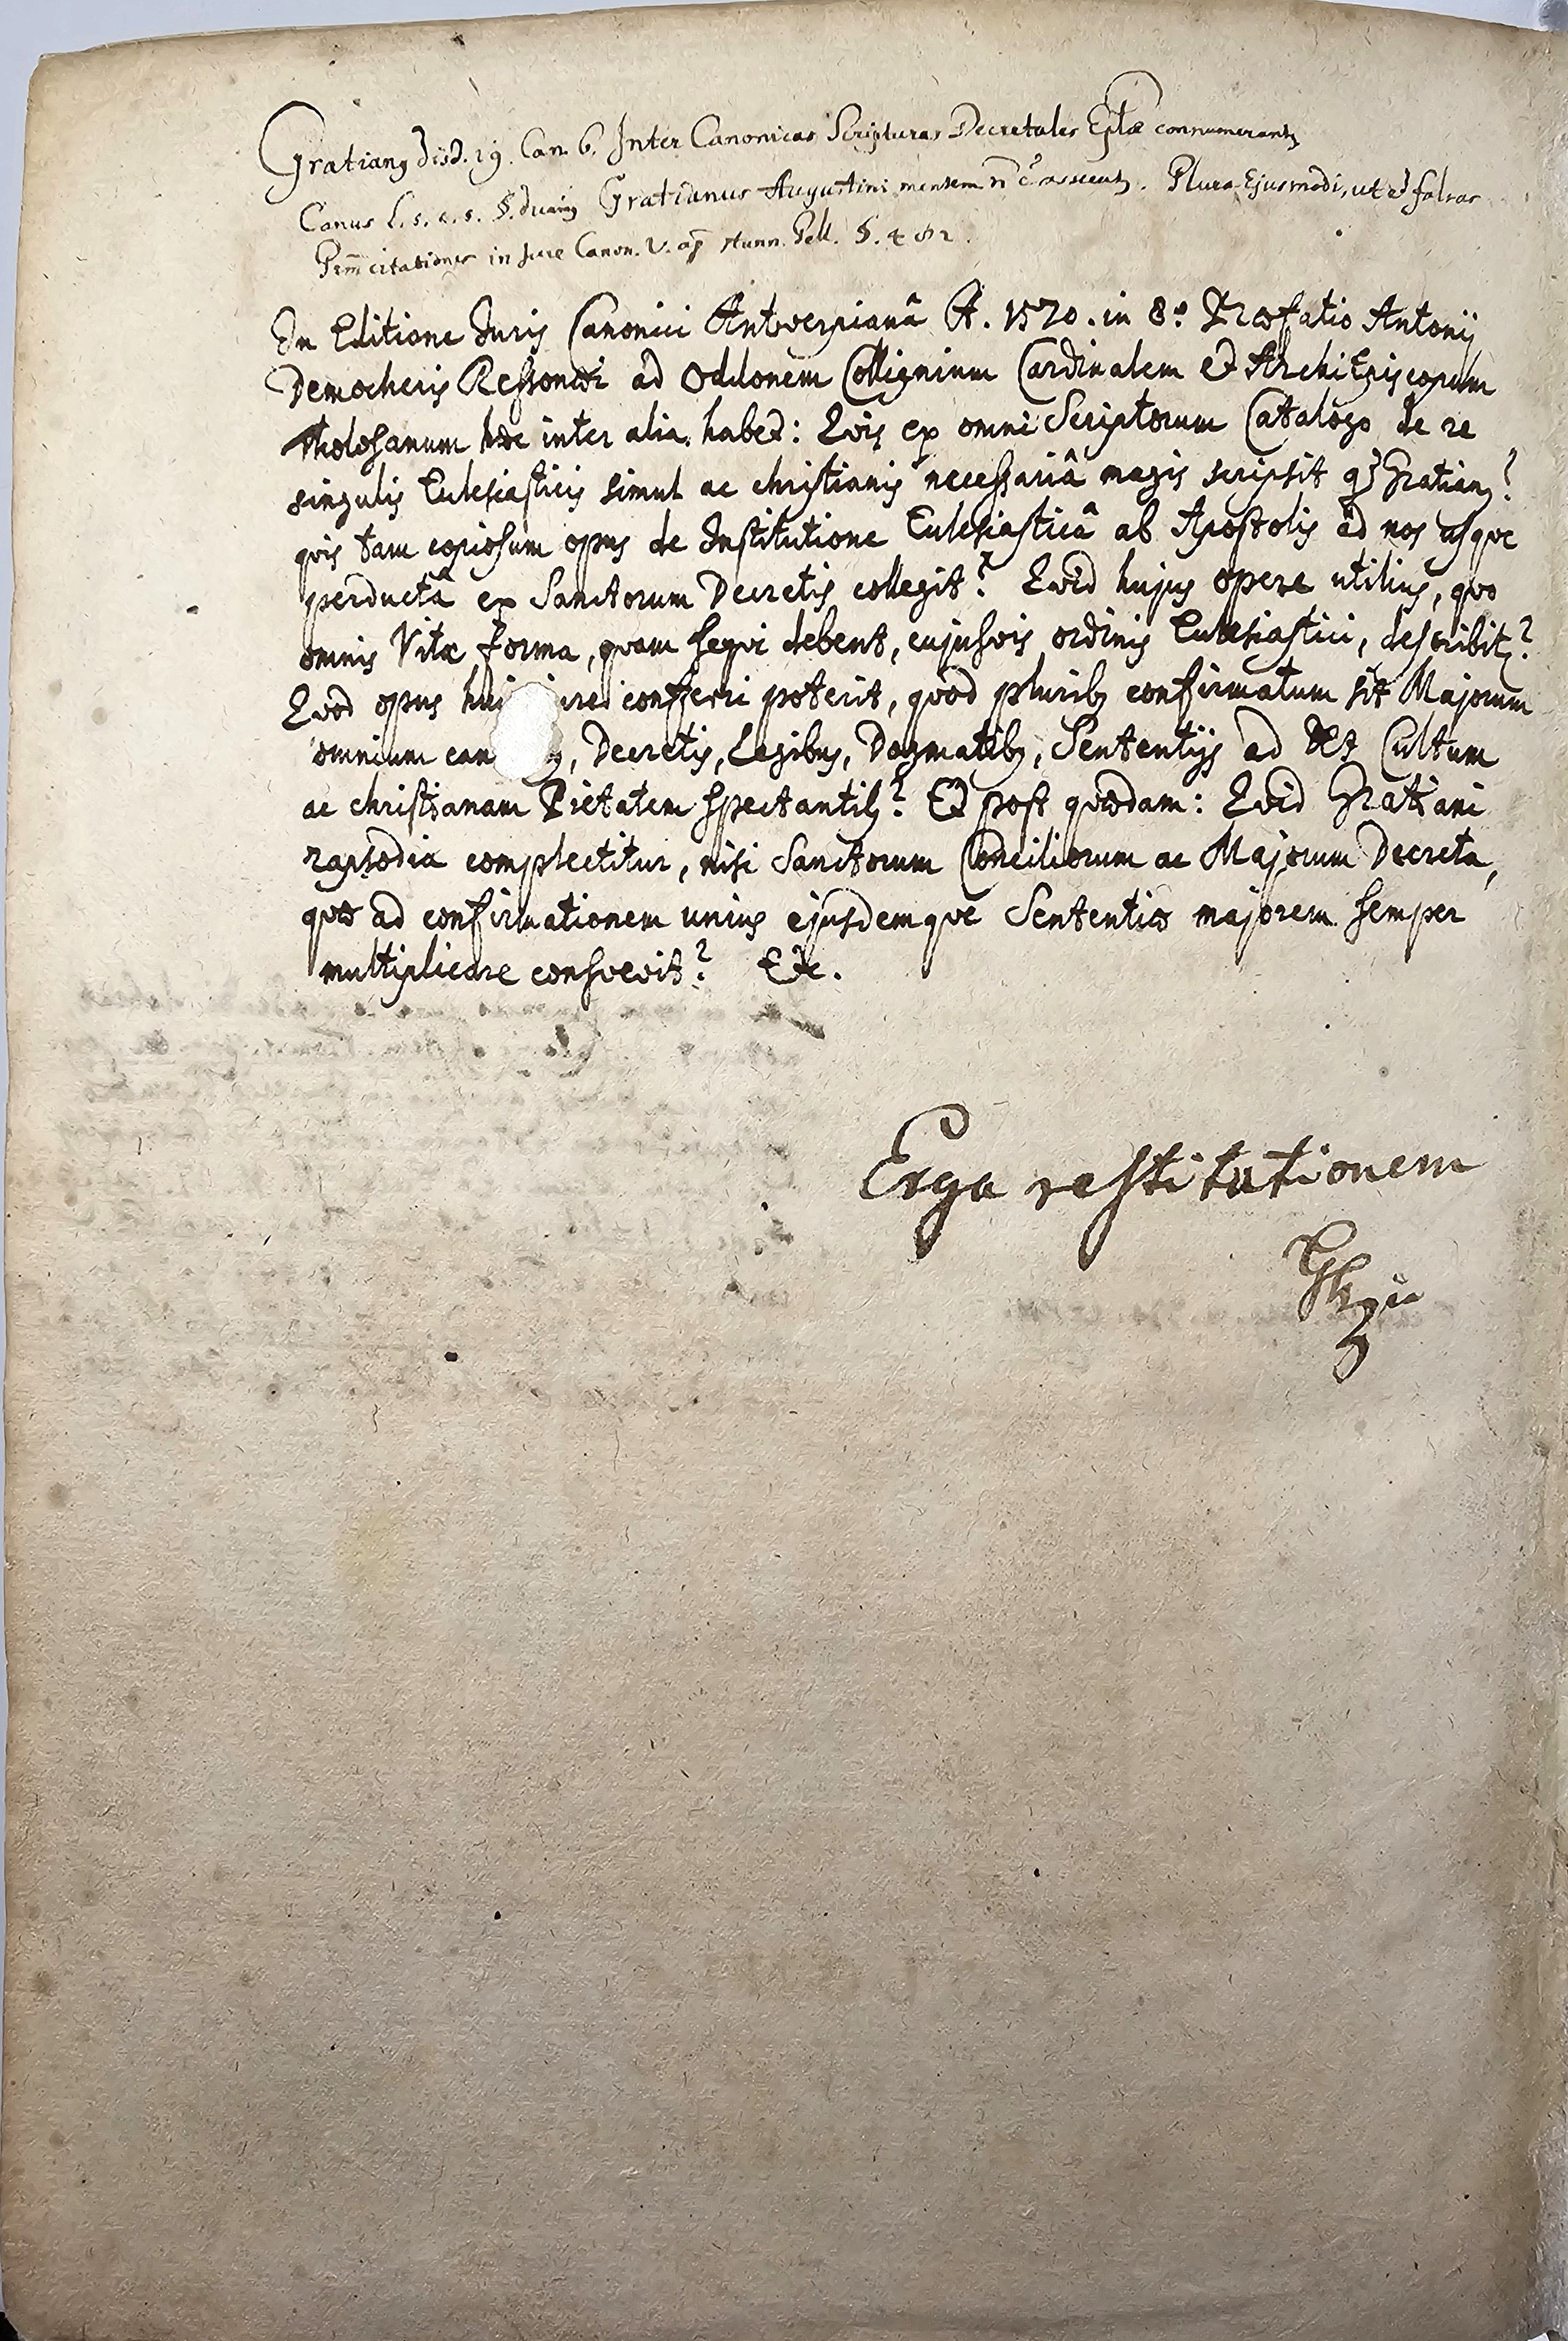 Gratian9 dist. 19. Can. 6. Inter Canonicas Scripturas Decretales Eplae connumerant
Canus l. 5. c. 5. Gratianus Augustini mentem ñ ẽ assecut9. Plura Ejusmodi, ut et falsas
citationes in Jure Canon. V. ap Hunn. Pell. §. 482.
In Editione Juris Canonici Antverpianâ A. 1570. in 8º Præfatio Antonij
Democheris Ressonæi ad Odd̶onem Collignium Cardinalem et ArchiEpiscopum
Tholosanum hæc inter alia habet: Qvis ex omni Scriptorum Catalogo de re
singulis Ecclesiasticis simul ac christianis necessariâ magis scripsit qz Gratian9?
qvis tam copiosum opus de Institutione Ecclesiasticâ ab Apostolis ad nos usqve
perductâ ex Sanctorum Decretis collegit? Qvid hujus opere utilius, qvo
omnis Vitæ forma, qvam seqvi debent, cujusvis ordinis Ecclesiastici, describit?
Qvod opus conferri poterit, qvod plurib9 confirmatum sit Majorum
omnium can Decretis, Legibus, Dogmatib9, Sententijs ad Cultum
ac christianam Pietatem spectantib9? Et post qvædam: Qvid Gratiani
rapsodia complectitur, nisi Sanctorum Conciliorum ac Majorum Decreta,
qvæ ad confirmationem unius ejusdemqve Sententiæ majorem semper
multiplicare consvevit? Etc.
Erga restitutionem